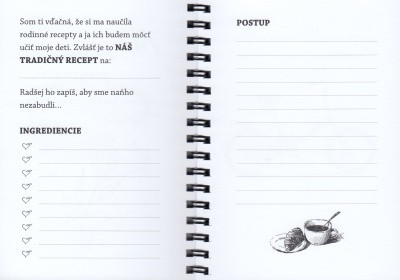 Som ti vďačná, že si ma naučila
rodinné recepty a ja ich budem môcť
učiť moje deti. Zvlášť je to NÁŠ
TRADIČNÝ RECEPT na:
Radšej ho zapíš, aby sme naňho
nezabudli...
INGREDIENCIE
POSTUP